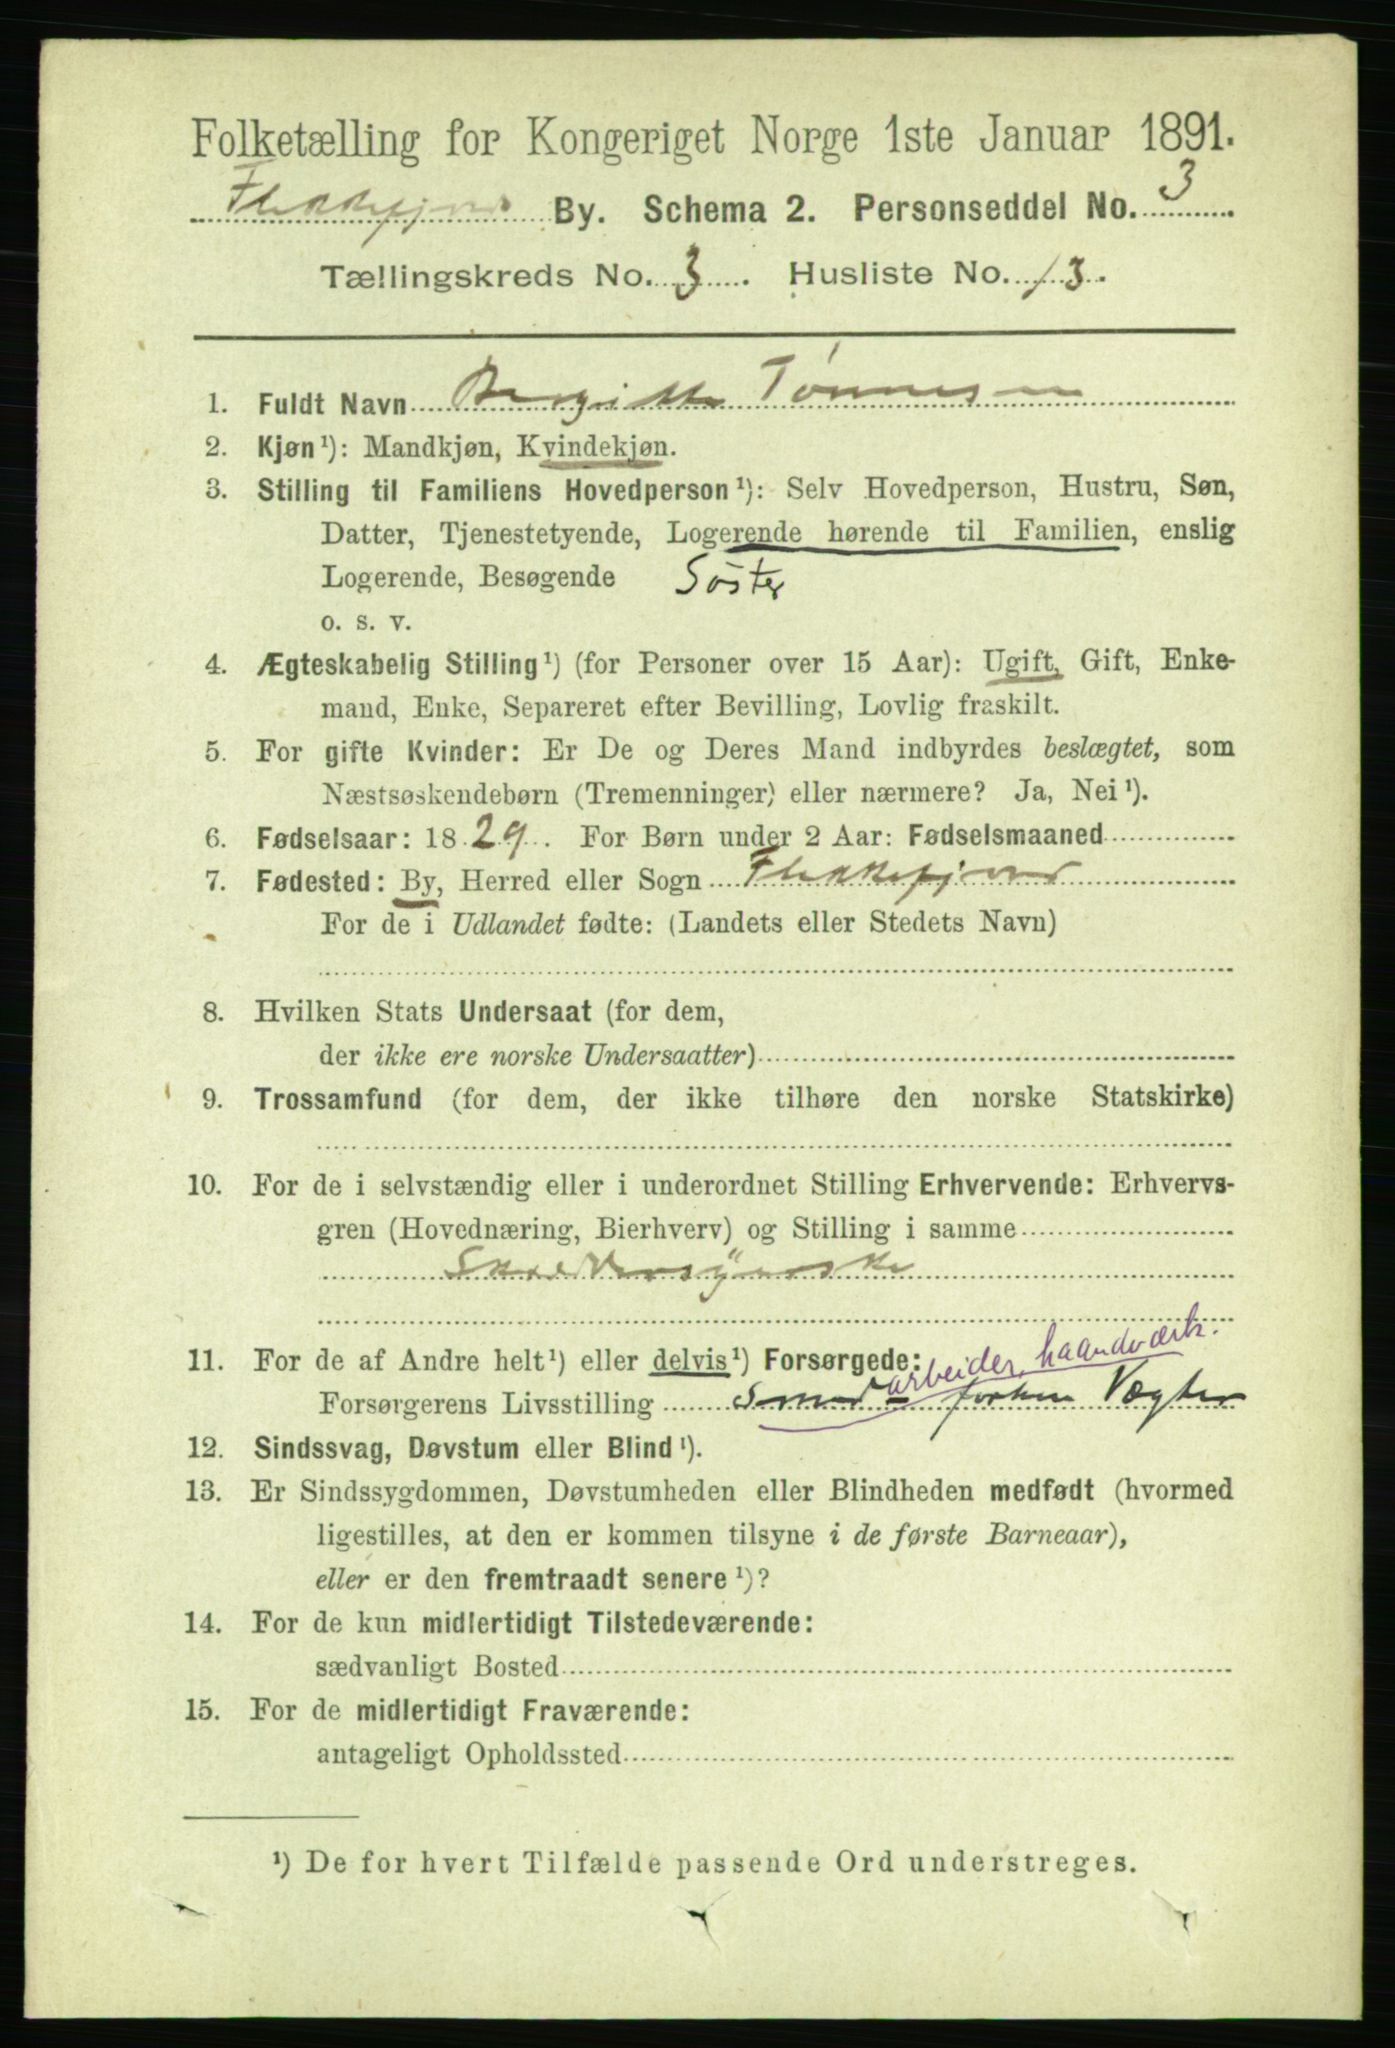 Folketælling for Kongeriget Norge 1ste Januar 1891.
Flekkefjord By. Schema 2. Personseddel No. 3
Tællingskreds No. 3. Husliste No. 13.
1. Fuldt Navn Bergitte Tönnesen
2. Kjøn¹): Mandkjøn, Kvindekjøn.
3. Stilling til Familiens Hovedperson¹): Selv Hovedperson, Hustru, Søn,
Datter, Tjenestetyende, Logerende hørende til Familien, enslig
Logerende, Besøgende Söster
o. s. v.
4. Ægteskabelig Stilling¹) (for Personer over 15 Aar): Ugift, Gift, Enke-
mand, Enke, Separeret efter Bevilling, Lovlig fraskilt.
5. For gifte Kvinder: Er De og Deres Mand indbyrdes beslægtet, som
Næstsøskendebørn (Tremenninger) eller nærmere? Ja, Nei¹).
6. Fødselsaar: 1829. For Børn under 2 Aar: Fødselsmaaned
7. Fødested: By, Herred eller Sogn Flekkefjord
For de i Udlandet fødte: (Landets eller Stedets Navn)
8. Hvilken Stats Undersaat (for dem,
der ikke ere norske Undersaatter)
9. Trossamfund (for dem, der ikke tilhøre den norske Statskirke)
10. For de i selvstændig eller i underordnet Stilling Erhvervende: Erhvervs-
gren (Hovednæring, Bierhverv) og Stilling i samme
Skreddersyerske
11. For de af Andre helt¹) eller delvis¹) Forsørgede:
arbeider, haandværk.
Forsørgerens Livsstilling Smed forhen Vægter
12. Sindssvag, Døvstum eller Blind¹).
13. Er Sindssygdommen, Døvstumheden eller Blindheden medfødt (hvormed
ligestilles, at den er kommen tilsyne i de første Barneaar),
eller er den fremtraadt senere¹)?
14. For de kun midlertidigt Tilstedeværende:
sædvanligt Bosted
15. For de midlertidigt Fraværende:
antageligt Opholdssted
¹) De for hvert Tilfælde passende Ord understreges.